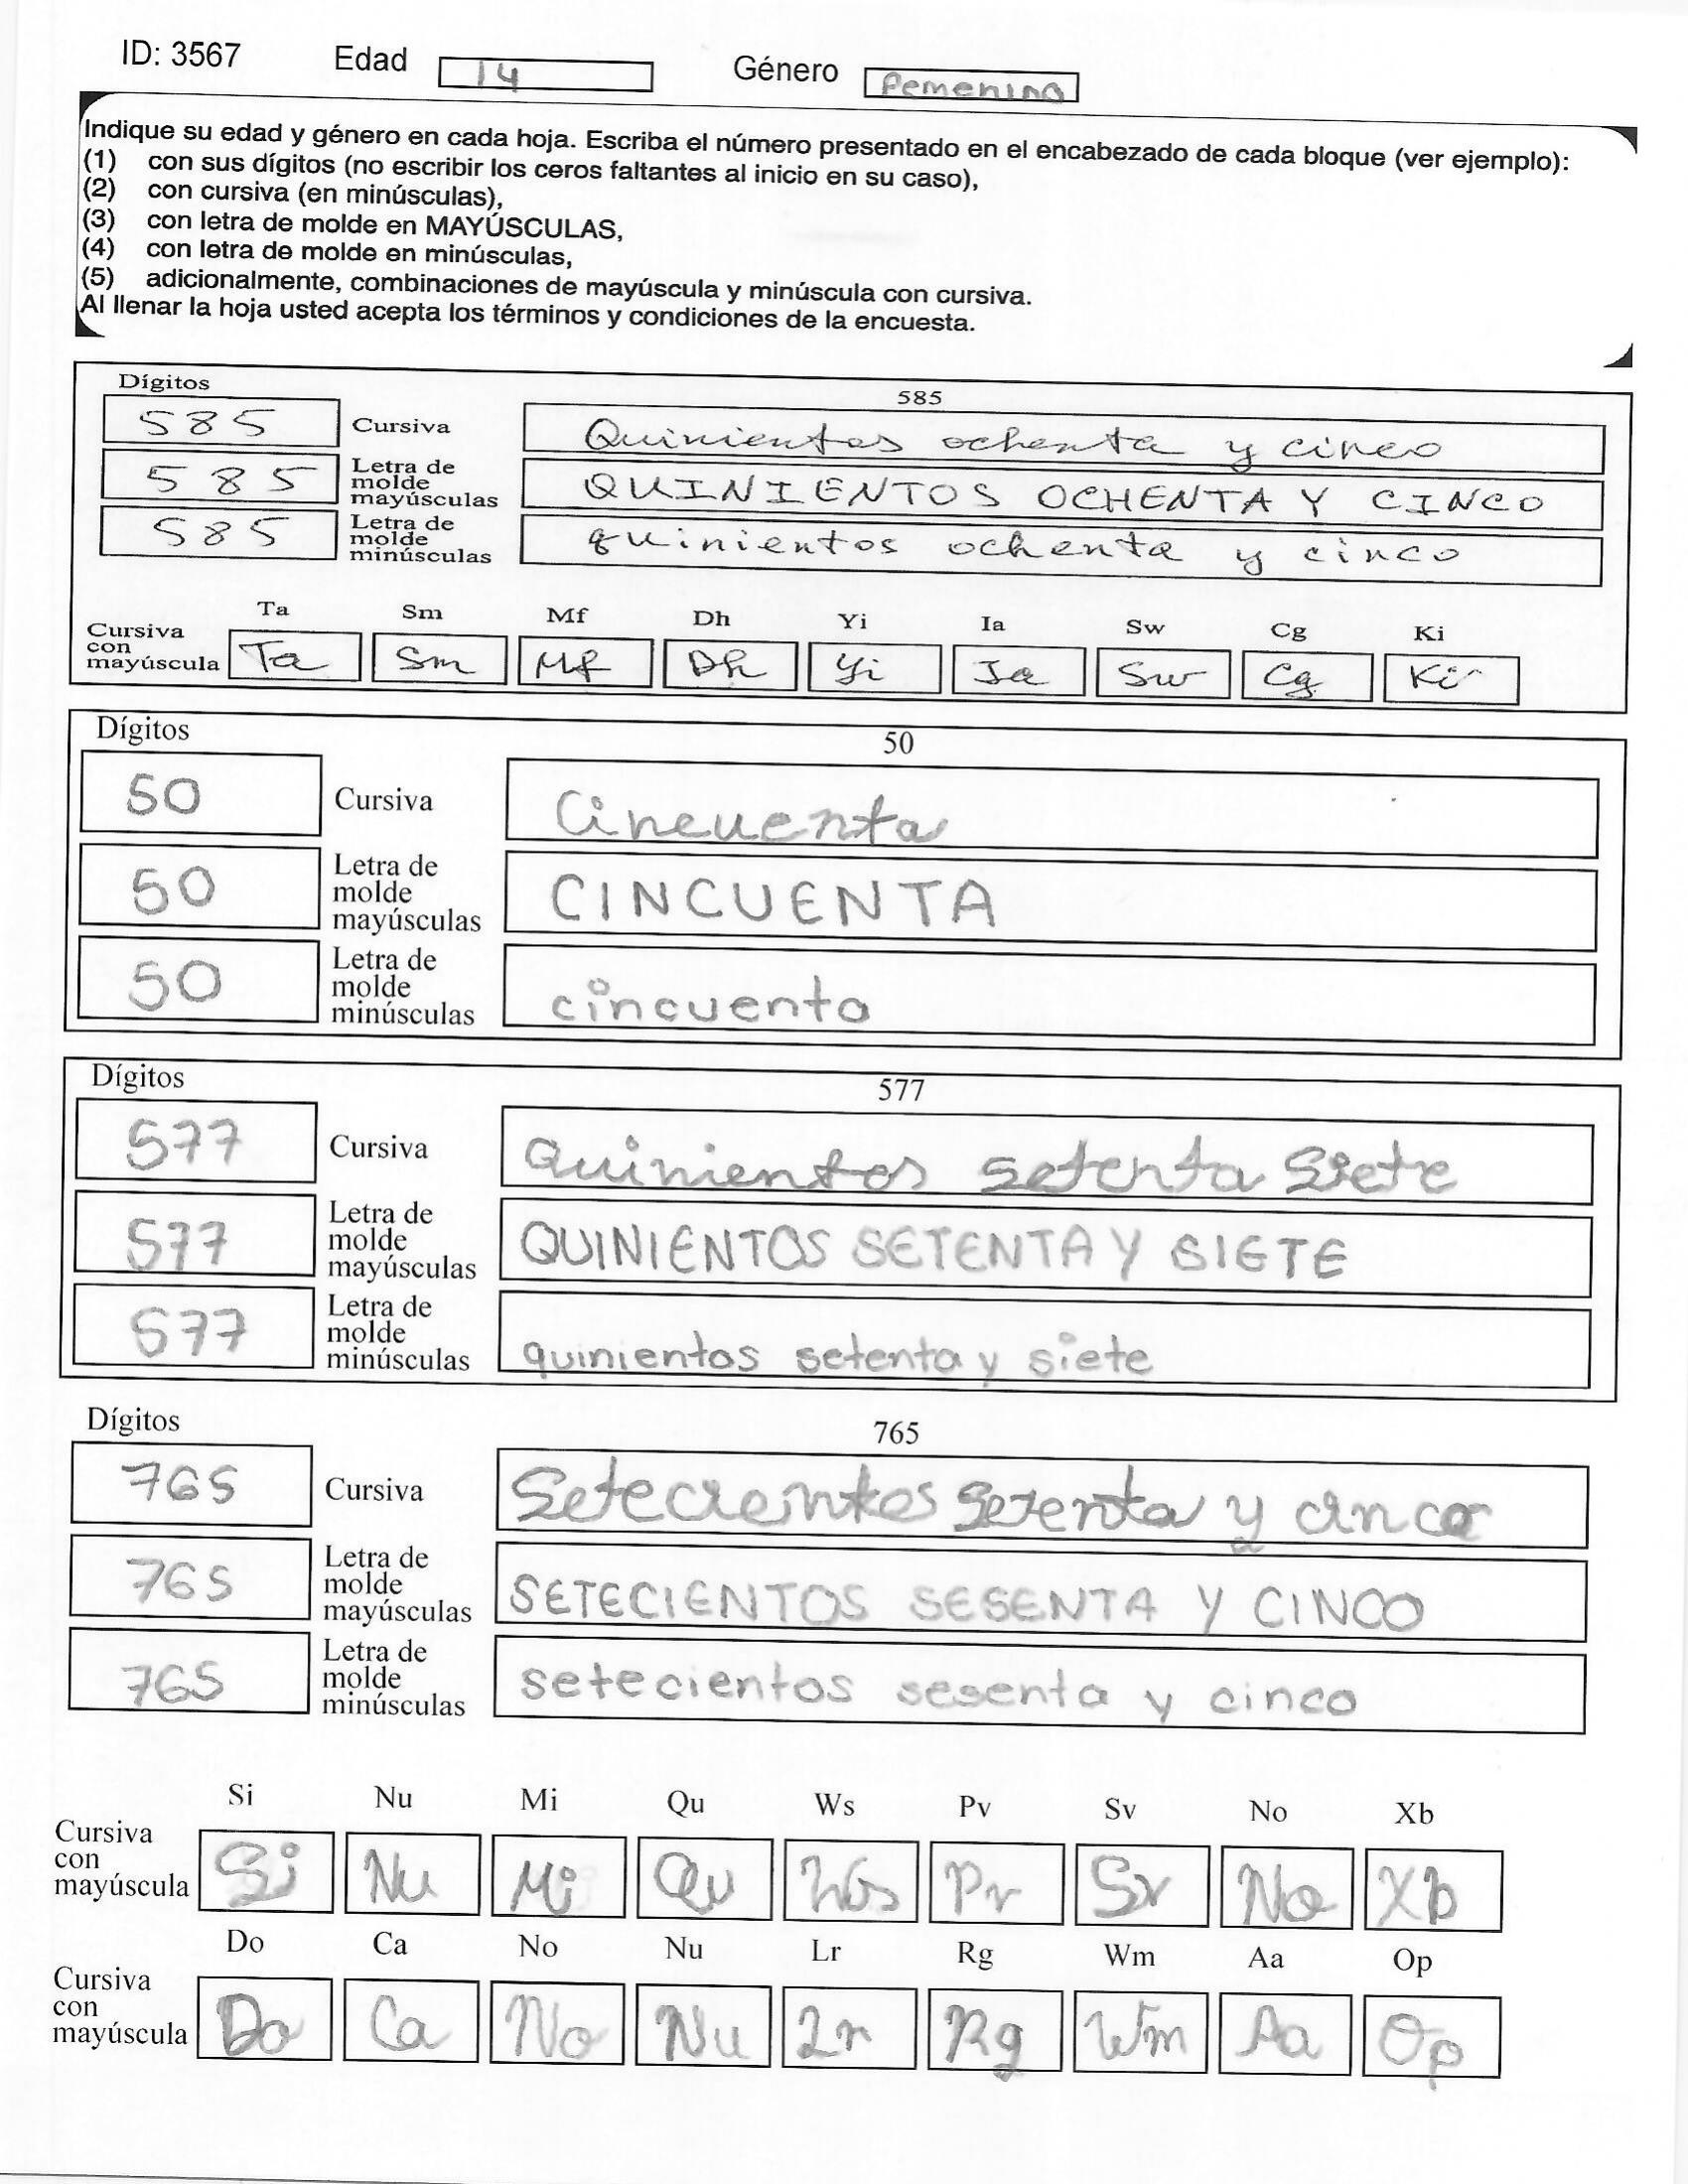 ID: 3567 Edad 14 Género Femenino
Indique su edad y género en cada hoja. Escriba el número presentado en el encabezado de cada bloque (ver ejemplo):
(1) con sus dígitos (no escribir los ceros faltantes al inicio en su caso),
(2) con cursiva (en minúsculas),
(3) con letra de molde en MAYÚSCULAS,
(4) con letra de molde en minúsculas,
(5) adicionalmente, combinaciones de mayúscula y minúscula con cursiva.
Al llenar la hoja usted acepta los términos y condiciones de la encuesta.
Dígitos 585
585 Cursiva Quinientos ochenta y cinco
585 Letra de molde mayúsculas QUINIENTOS OCHENTA Y CINCO
585 Letra de molde minúsculas quinientos ochenta y cinco
Ta Sm Mf Dh Yi Ia Sw Cg Ki
Cursiva con mayúscula Ta Sm Mf Dh Yi Ia Sw Cg Ki
Dígitos 50
50 Cursiva Cincuenta
50 Letra de molde mayúsculas CINCUENTA
50 Letra de molde minúsculas cincuenta
Dígitos 577
577 Cursiva Quinientos setenta Siete
577 Letra de molde mayúsculas QUINIENTOS SETENTA Y SIETE
577 Letra de molde minúsculas quinientos setenta y siete
Dígitos 765
765 Cursiva Setecientos y cinco
765 Letra de molde mayúsculas SETECIENTOS SESENTA Y CINCO
765 Letra de molde minúsculas setecientos sesenta y cinco
Si Nu Mi Qu Ws Pv Sv No Xb
Cursiva con mayúscula Si Nu Mi Qu Ws Pv Sv No Xb
Do Ca No Nu Lr Rg Wm Aa Op
Cursiva con mayúscula Do Ca No Nu Lr Rg Wm Aa Op